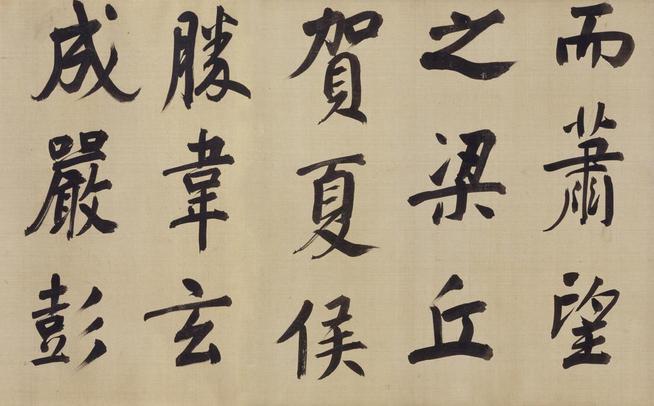 而蕭望
之梁丘
賀夏侯
勝韋玄
成嚴彭